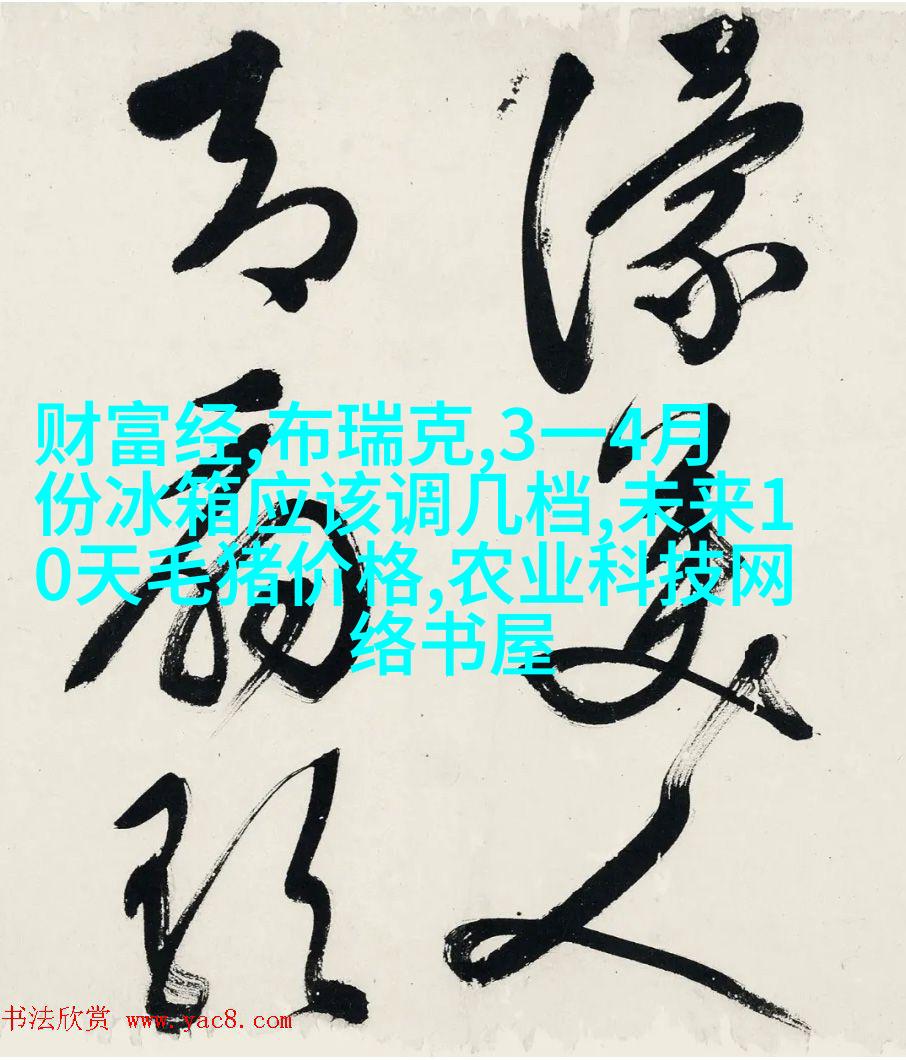 濠美人
却扇歌
财富经,布瑞克,3一4月
份冰箱应该调几档,未来1
0天毛猪价格,农业科技网
络书屋
书法欣赏 www.yac8.com